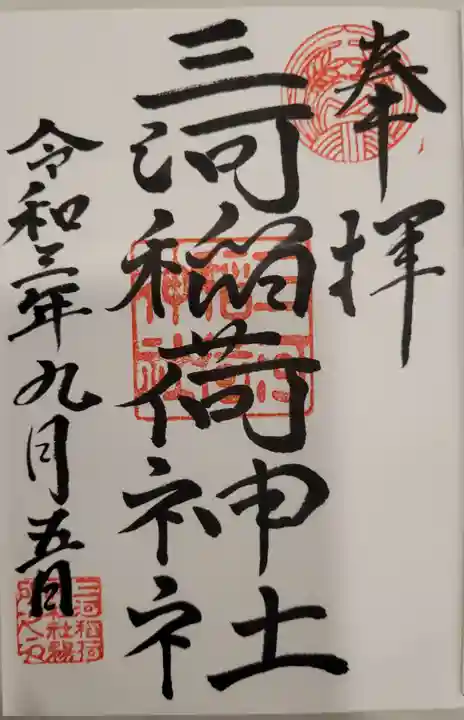 奉拝
三河稲荷神社
令和三年九月五日
三河稲荷神社